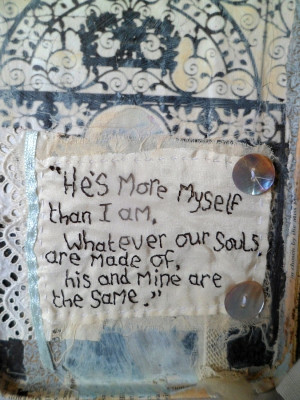 "He's More Myself
than I am.
Whatever our Souls,
are made of,
his and Mine are
the Same."